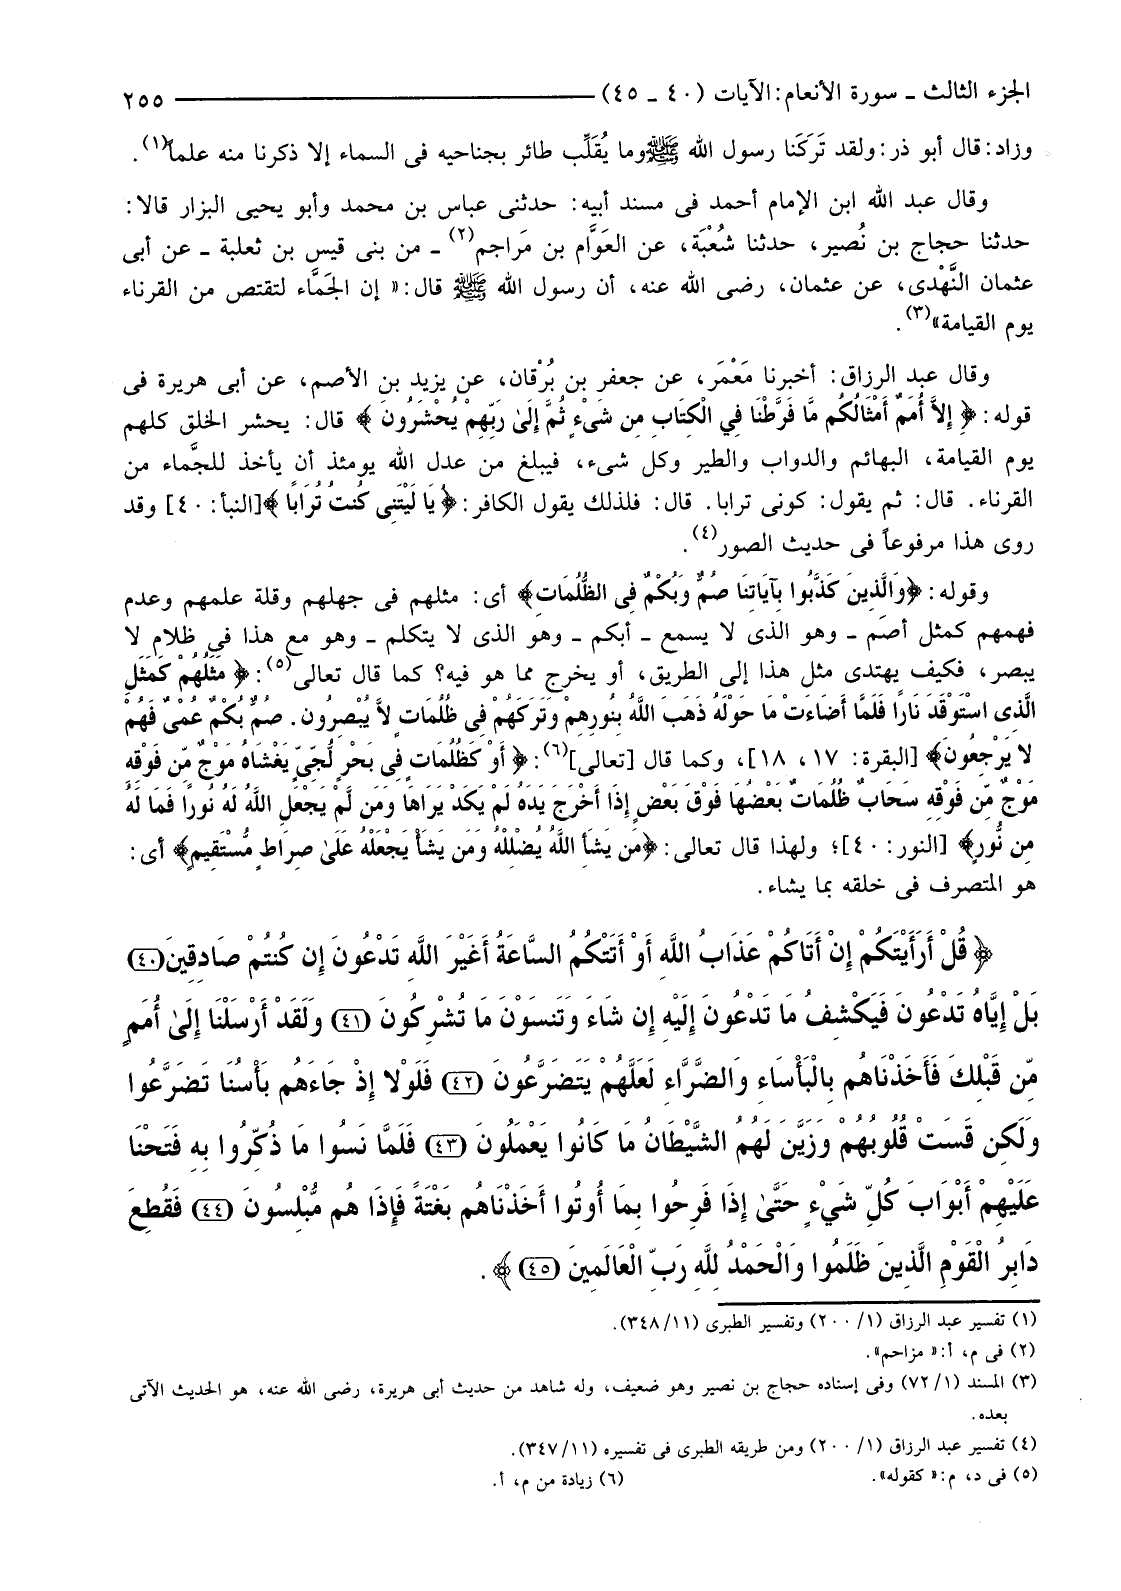 الجزء الثالث ـ سورة الأنعام: الآيات (٤٠ ـ ٤٥) ــــــــــــ ٢٥٥
وزاد: قال أبو ذر: ولقد تَرَكَنا رسول الله ﷺ وما يُقَلِّب طائر بجناحيه فى السماء إلا ذكرنا منه علماً(١).
وقال عبد الله ابن الإمام أحمد فى مسند أبيه: حدثنى عباس بن محمد وأبو يحيى البزار قالا:
حدثنا حجاج بن نُصير، حدثنا شُعْبَة، عن العَوَّام بن مَراجم(٢) ـ من بنى قيس بن ثعلبة ـ عن أبى
عثمان النَّهْدى، عن عثمان، رضى الله عنه، أن رسول الله ﷺ قال: « إن الجَمَّاء لتقتص من القرناء
يوم القيامة»(٣).
وقال عبد الرزاق: أخبرنا مَعْمَر، عن جعفر بن بُرْقان، عن يزيد بن الأصم، عن أبى هريرة فى
قوله: ﴿ إِلاَّ أُمَمٌ أَمْثَالُكُم مَّا فَرَّطْنَا فِي الْكِتَابِ مِن شَيْءٍ ثُمَّ إِلَىٰ رَبِّهِمْ يُحْشَرُونَ ﴾ قال: يحشر الخلق كلهم
يوم القيامة، البهائم والدواب والطير وكل شىء، فيبلغ من عدل الله يومئذ أن يأخذ للجَّماء من
القرناء. قال: ثم يقول: كونى ترابا. قال: فلذلك يقول الكافر: ﴿ يَا لَيْتَنِي كُنتُ تُرَابًا ﴾[النبأ: ٤٠] وقد
روى هذا مرفوعاً فى حديث الصور(٤).
وقوله: ﴿وَالَّذِينَ كَذَّبُوا بِآيَاتِنَا صُمٌّ وَبُكْمٌ فِي الظُّلُمَاتِ﴾ أى: مثلهم فى جهلهم وقلة علمهم وعدم
فهمهم كمثل أصم ـ وهو الذى لا يسمع ـ أبكم ـ وهو الذى لا يتكلم ـ وهو مع هذا فى ظلام لا
يبصر، فكيف يهتدى مثل هذا إلى الطريق، أو يخرج مما هو فيه؟ كما قال تعالى(٥): ﴿ مَثَلُهُمْ كَمَثَلِ
الَّذِي اسْتَوْقَدَ نَارًا فَلَمَّا أَضَاءَتْ مَا حَوْلَهُ ذَهَبَ اللَّهُ بِنُورِهِمْ وَتَرَكَهُمْ فِي ظُلُمَاتٍ لاَّ يُبْصِرُون. صُمٌّ بُكْمٌ عُمْيٌ فَهُمْ
لا يَرْجِعُونَ﴾ [البقرة: ١٧، ١٨]، وكما قال [تعالى](٦): ﴿ أَوْ كَظُلُمَاتٍ فِي بَحْرٍ لُّجِّيٍّ يَغْشَاهُ مَوْجٌ مِّن فَوْقِهِ
مَوْجٌ مِّن فَوْقِهِ سَحَابٌ ظُلُمَاتٌ بَعْضُهَا فَوْقَ بَعْضٍ إِذَا أَخْرَجَ يَدَهُ لَمْ يَكَدْ يَرَاهَا وَمَن لَّمْ يَجْعَلِ اللَّهُ لَهُ نُورًا فَمَا لَهُ
مِن نُّورٍ﴾ [النور: ٤٠]؛ ولهذا قال تعالى: ﴿مَن يَشَأِ اللَّهُ يُضْلِلْهُ وَمَن يَشَأْ يَجْعَلْهُ عَلَىٰ صِرَاطٍ مُّسْتَقِيمٍ﴾ أى:
هو المتصرف فى خلقه بما يشاء.
﴿ قُلْ أَرَأَيْتَكُمْ إِنْ أَتَاكُمْ عَذَابُ اللَّهِ أَوْ أَتَتْكُمُ السَّاعَةُ أَغَيْرَ اللَّهِ تَدْعُونَ إِن كُنتُمْ صَادِقِينَ (٤٠)
بَلْ إِيَّاهُ تَدْعُونَ فَيَكْشِفُ مَا تَدْعُونَ إِلَيْهِ إِن شَاءَ وَتَنسَوْنَ مَا تُشْرِكُونَ (٤١) وَلَقَدْ أَرْسَلْنَا إِلَىٰ أُمَمٍ
مِّن قَبْلِكَ فَأَخَذْنَاهُم بِالْبَأْسَاءِ وَالضَّرَّاءِ لَعَلَّهُمْ يَتَضَرَّعُونَ (٤٢) فَلَوْلا إِذْ جَاءَهُم بَأْسُنَا تَضَرَّعُوا
وَلَكِن قَسَتْ قُلُوبُهُمْ وَزَيَّنَ لَهُمُ الشَّيْطَانُ مَا كَانُوا يَعْمَلُونَ (٤٣) فَلَمَّا نَسُوا مَا ذُكِّرُوا بِهِ فَتَحْنَا
عَلَيْهِمْ أَبْوَابَ كُلِّ شَيْءٍ حَتَّىٰ إِذَا فَرِحُوا بِمَا أُوتُوا أَخَذْنَاهُم بَغْتَةً فَإِذَا هُم مُّبْلِسُونَ (٤٤) فَقُطِعَ
دَابِرُ الْقَوْمِ الَّذِينَ ظَلَمُوا وَالْحَمْدُ لِلَّهِ رَبِّ الْعَالَمِينَ (٤٥) ﴾ .
(١) تفسير عبد الرزاق (١/ ٢٠٠) وتفسير الطبرى (١١/ ٣٤٨).
(٢) فى م، أ: « مزاحم».
(٣) المسند (١/ ٧٢) وفى إسناده حجاج بن نصير وهو ضعيف، وله شاهد من حديث أبى هريرة، رضى الله عنه، هو الحديث الآتى
بعده.
(٤) تفسير عبد الرزاق (١/ ٢٠٠) ومن طريقه الطبرى فى تفسيره (١١/ ٣٤٧).
(٥) فى د، م: « كقوله». (٦) زيادة من م، أ.